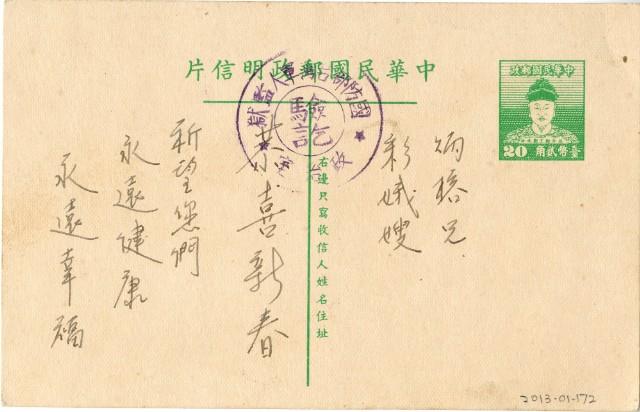 中華民國郵政明信片
中華民國郵政
20
臺幣貳角
國防部
監獄
炳
兄
彩娥嫂
右邊只寫收信人姓名住址
恭喜新春
祈望您們
永遠健康
永遠幸福
2013-01-172